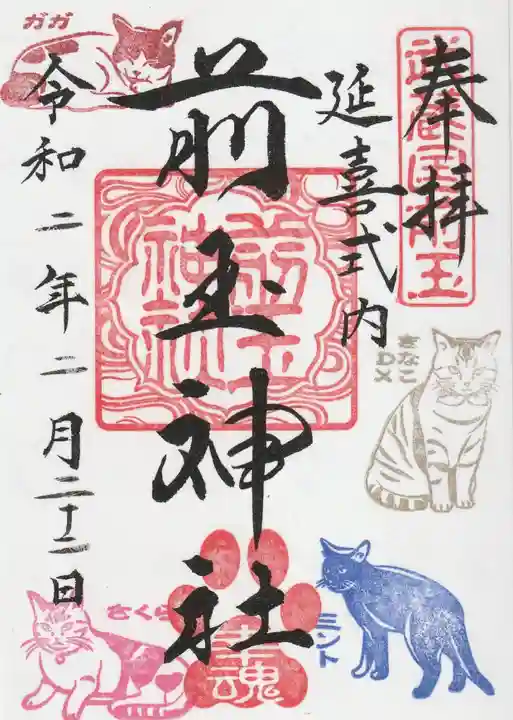 奉拝
武蔵国前玉
延喜式内
前玉神社
前玉神社
幸魂
令和二年二月二十二日
ガガ
きなこDX
ミント
さくら